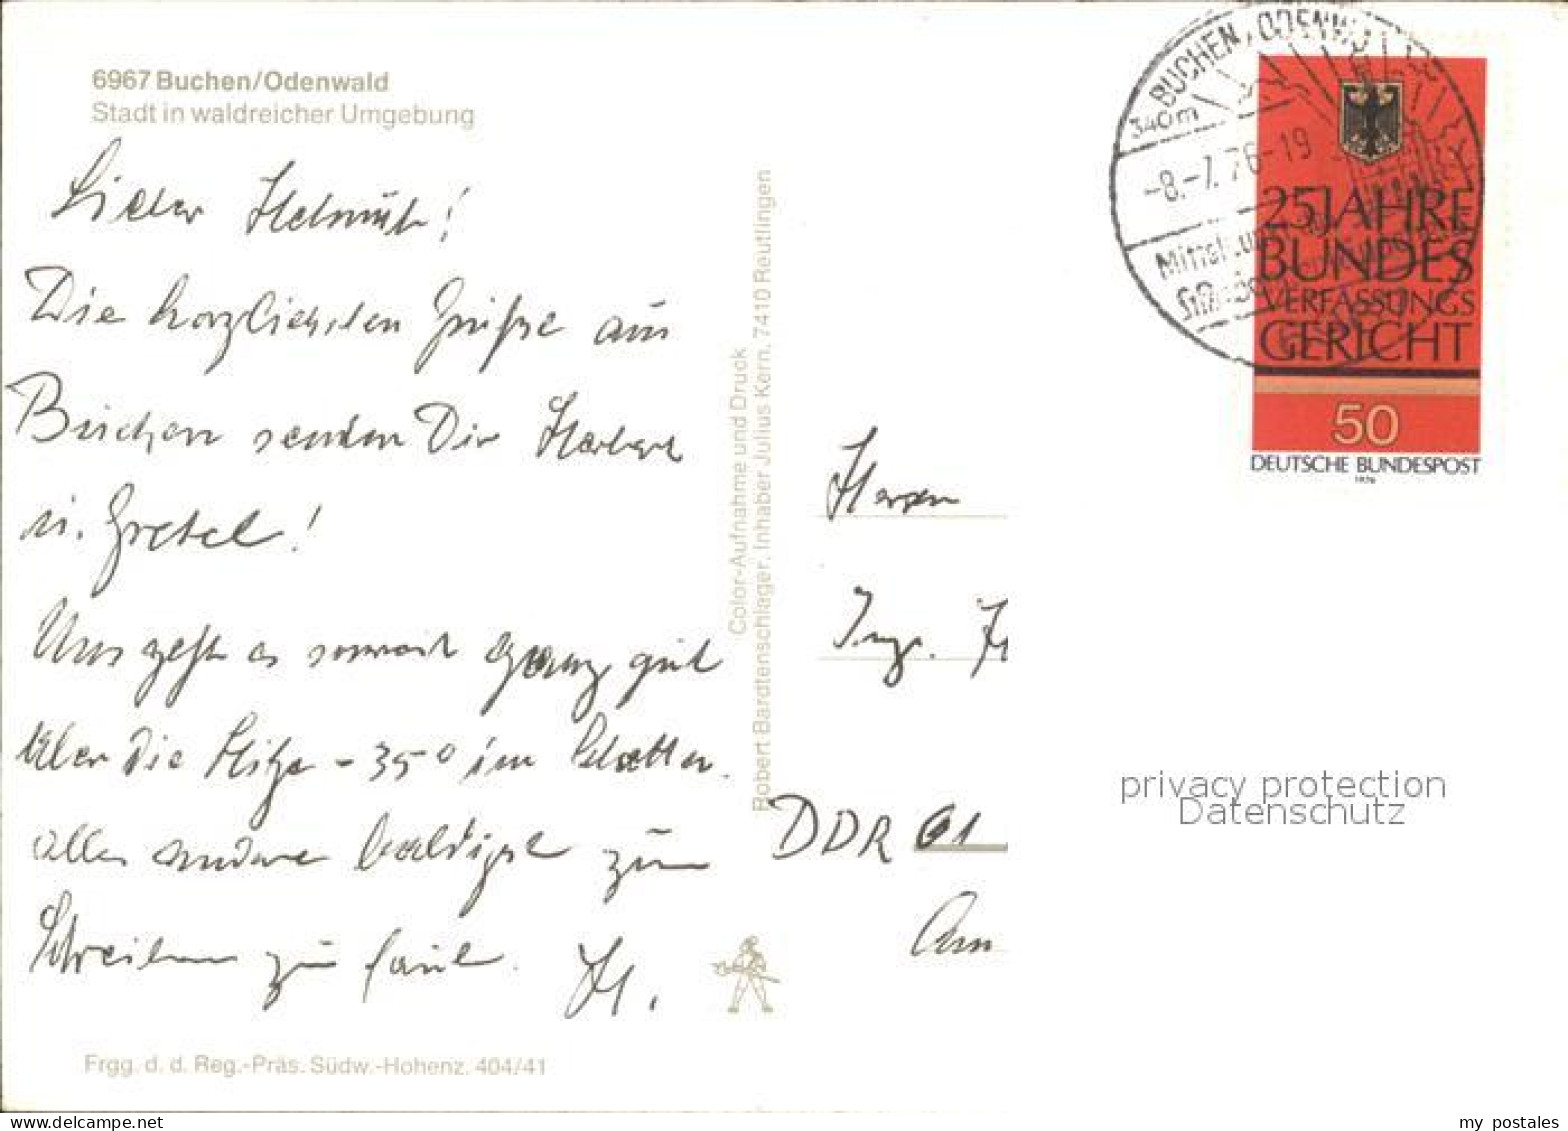 6967 Buchen/Odenwald
Stadt in waldreicher Umgebung
Lieber Helmut!
Die herzlichsten Grüße aus
Buchen senden Dir Herbert
u. Gretel!
Uns geht es soweit ganz gut
über die Hitze - 35° im Schatten.
alles andere
Schreiben zu faul. H.
Frgg. d. d. Reg.-Präs. Südw.-Hohenz. 404/41
Color-Aufnahme und Druck
Robert Bardtenschlager, Inhaber Julius Kern, 7410 Reutlingen
BUCHEN, ODENW
340m
-8.-7.76-19
25 JAHRE
BUNDES
VERFASSUNGS
GERICHT
50
DEUTSCHE BUNDESPOST
1976
Herrn
Ing.
DDR 61
Am
privacy protection
Datenschutz
my postales